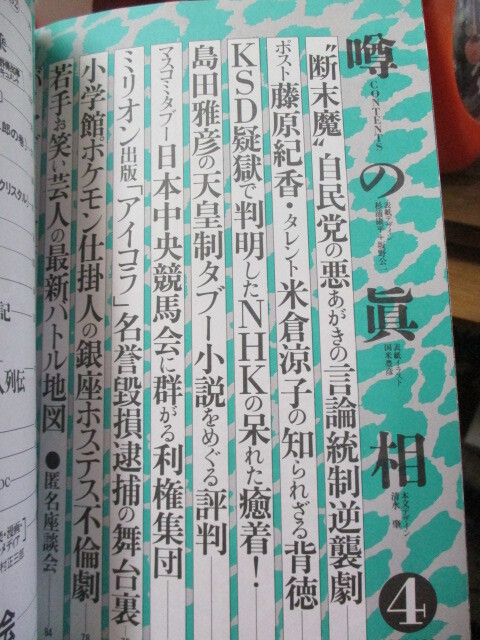 噂の眞相
CONTENTS
表紙デザイン
杉浦康平+坂野公一
表紙イラスト
国米豊彦
本文デザイン
清水 肇
4
“断末魔”自民党の悪あがきの言論統制逆襲劇
ポスト藤原紀香・タレント米倉涼子の知られざる背徳
KSD疑獄で判明したNHKの呆れた癒着！
島田雅彦の天皇制タブー小説をめぐる評判
マスコミタブー日本中央競馬会に群がる利権集団
ミリオン出版「アイコラ」名誉毀損逮捕の舞台裏
小学館ポケモン仕掛人の銀座ホステス不倫劇
78
若手お笑い芸人の最新バトル地図 ●匿名座談会
84